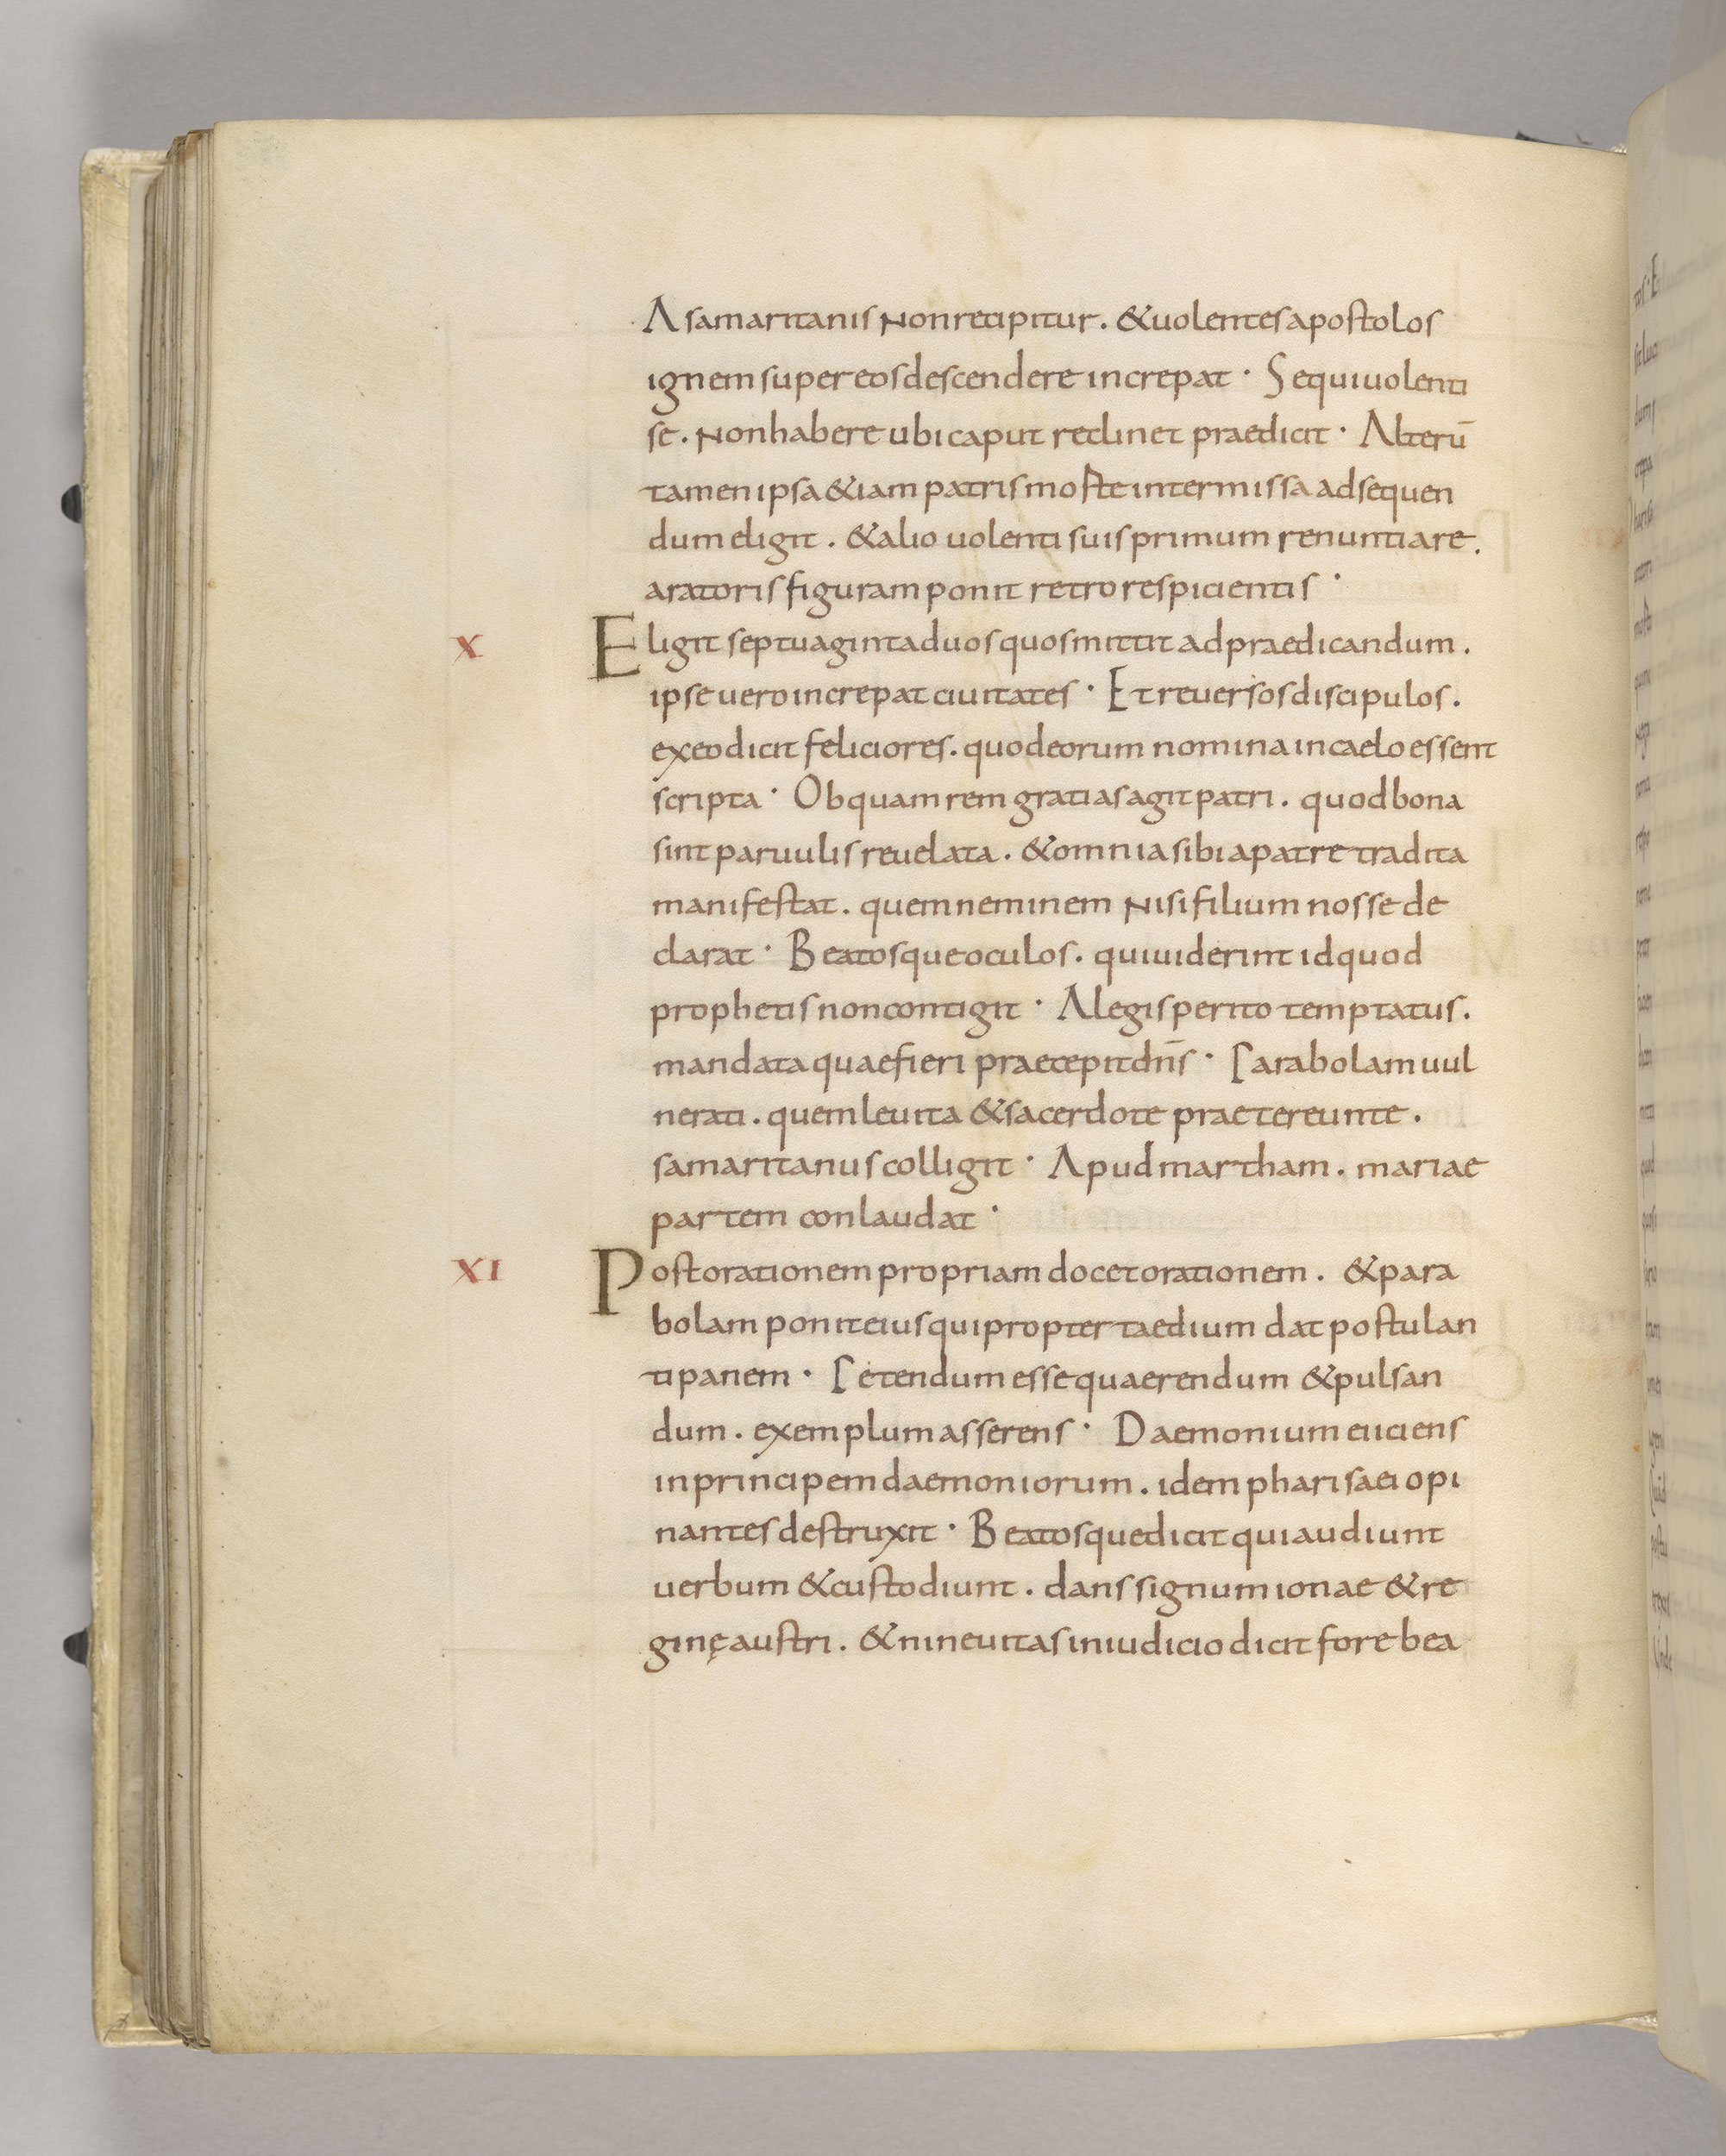 A samaritanis non recipitur . & uolentes apostolos
ignem super eos descendere increpat · Sequi uolenti
se . non habere ubi caput reclinet praedicit · Alterū
tamen ipsa &iam patris moste intermissa ad sequen
dum eligit . & alio uolenti suis primum renuntiare .
aratoris figuram ponit retro respicientis ·
X Eligit septuaginta duos quos mittit ad praedicandum .
ipse uero increpat ciuitates · Et reuersos discipulos .
ex eo dicit feliciores . quod eorum nomina in caelo essent
scripta · Ob quam rem gratias agit patri . quod bona
sint paruulis reuelata . & omnia sibi a patre tradita
manifestat . quem neminem nisi filium nosse de
clarat · Beatosque oculos . qui uiderint id quod
prophetis non contigit · A legisperito temptatus .
mandata quae fieri praecepit dn̄s · Parabolam uul
nerati . quem leuita & sacerdote praetereunte .
samaritanus colligit · Apud martham . mariae
partem conlaudat ·
XI Post orationem propriam docet orationem . & para
bolam ponit eius qui propter taedium dat postulan
ti panem · Petendum esse quaerendum & pulsan
dum . exemplum asserens · Daemonium eiciens
in principem daemoniorum . idem pharisaei opi
nantes destruxit · Beatosque dicit qui audiunt
uerbum & custodiunt . dans signum ionae & re
ginę austri . & nineuitas in iudicio dicit fore bea